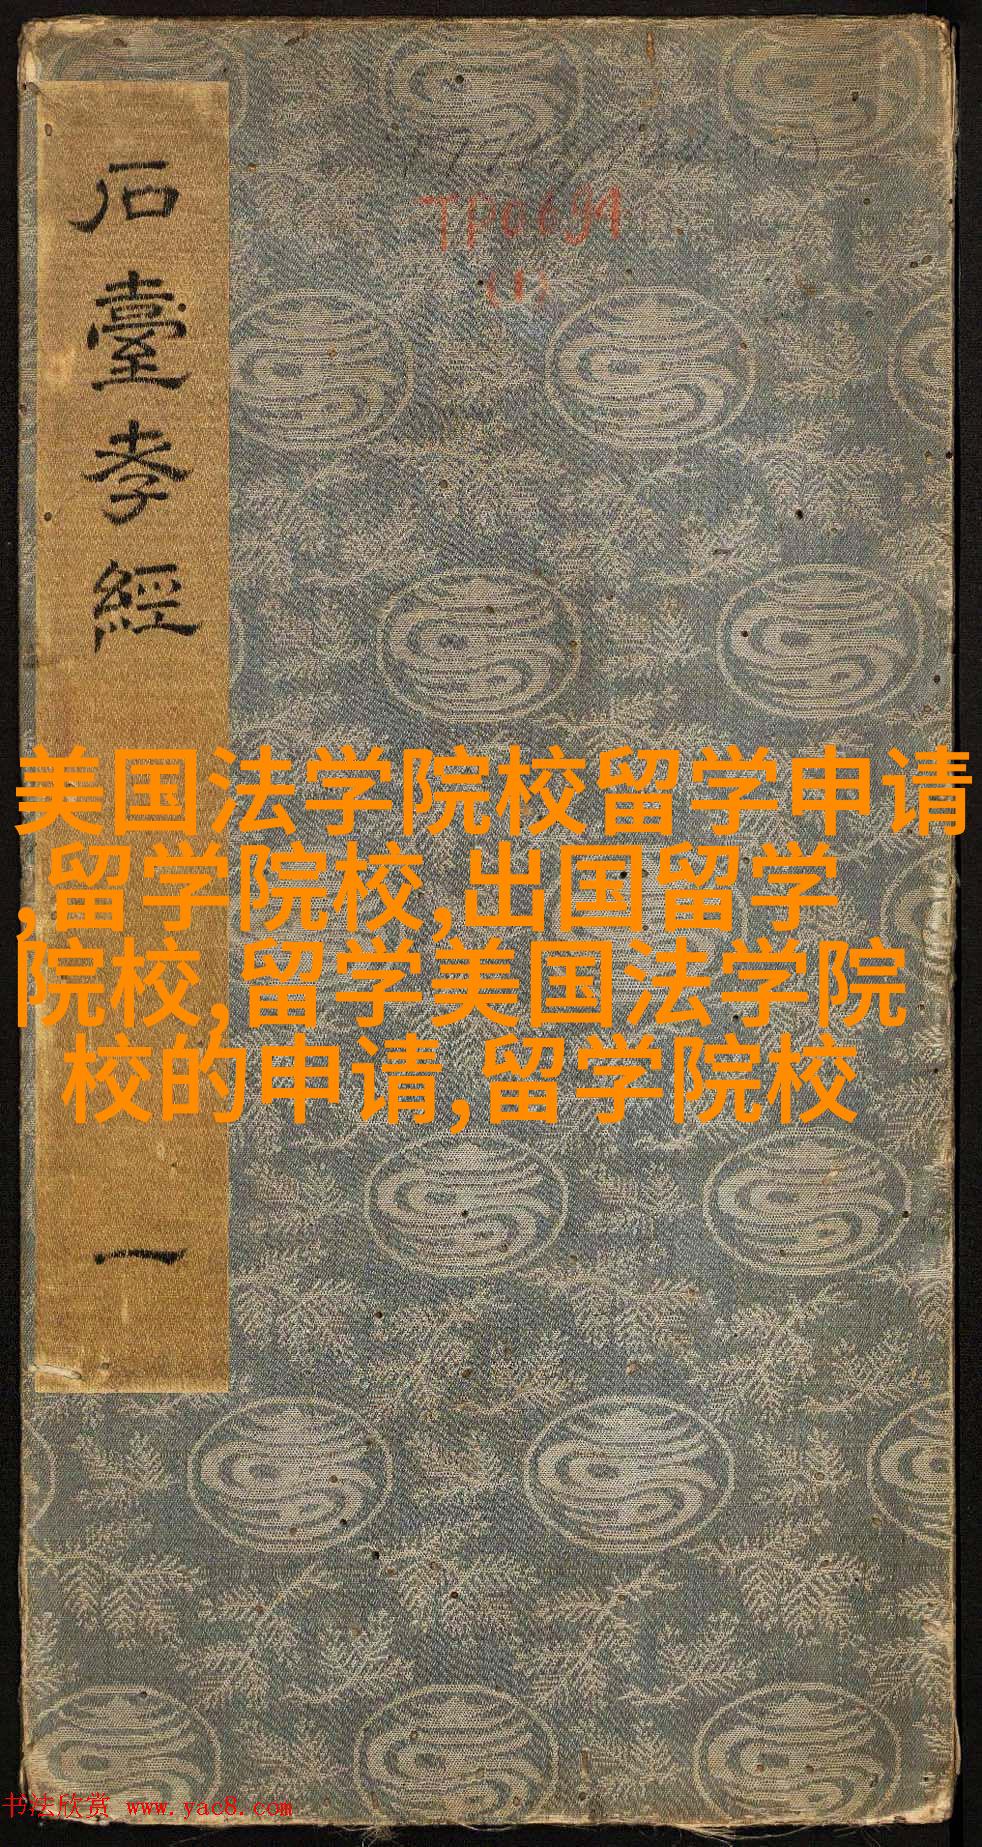 石臺孝經
一
TP0691
(1)
美国法学院校留学申请
,留学院校,出国留学
院校,留学美国法学院
校的申请,留学院校
书法欣赏 www.yac8.com